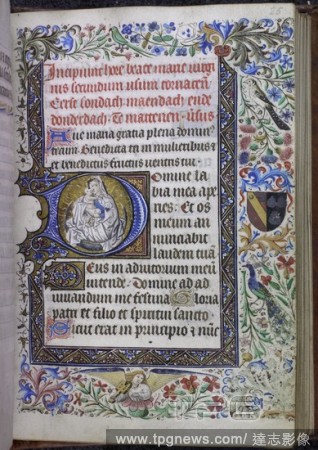 Incipiunt hore beate marie virgi
nis secundum usum tornacen
Eerst sondach maendach ende
donderdach Te mattenen ūsus
Ave maria gratia plena domin9
tecum. Benedicta tu in mulieribus et
et benedictus fructus ventris tui
Domine la
bia mea ape
ries. Et os
meum an
nunciabit
laudem tuā
Deus in adiutorium meū
intende. Domine ad ad
iuvandum me festina Gloria
patri et filio et spiritui sancto
Sicut erat in principio et nūc
www.tpgnews.com/ 達志影像